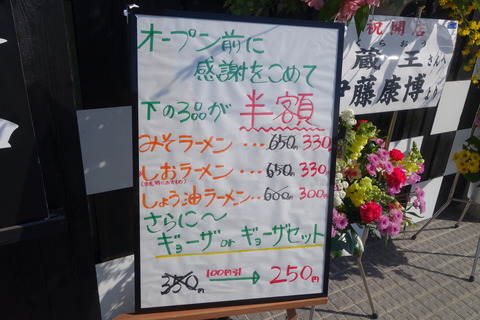 オープン前に
感謝をこめて
下の3品が 半額
みそラーメン・・・650円 330円
しおラーメン・・・・650円 330円
しょう油ラーメン・・600円 300円
さらに〜
ギョーザ or ギョーザセット
350円 100円引 → 250円
祝開店
くらおう
蔵王さんへ
伊藤康博より